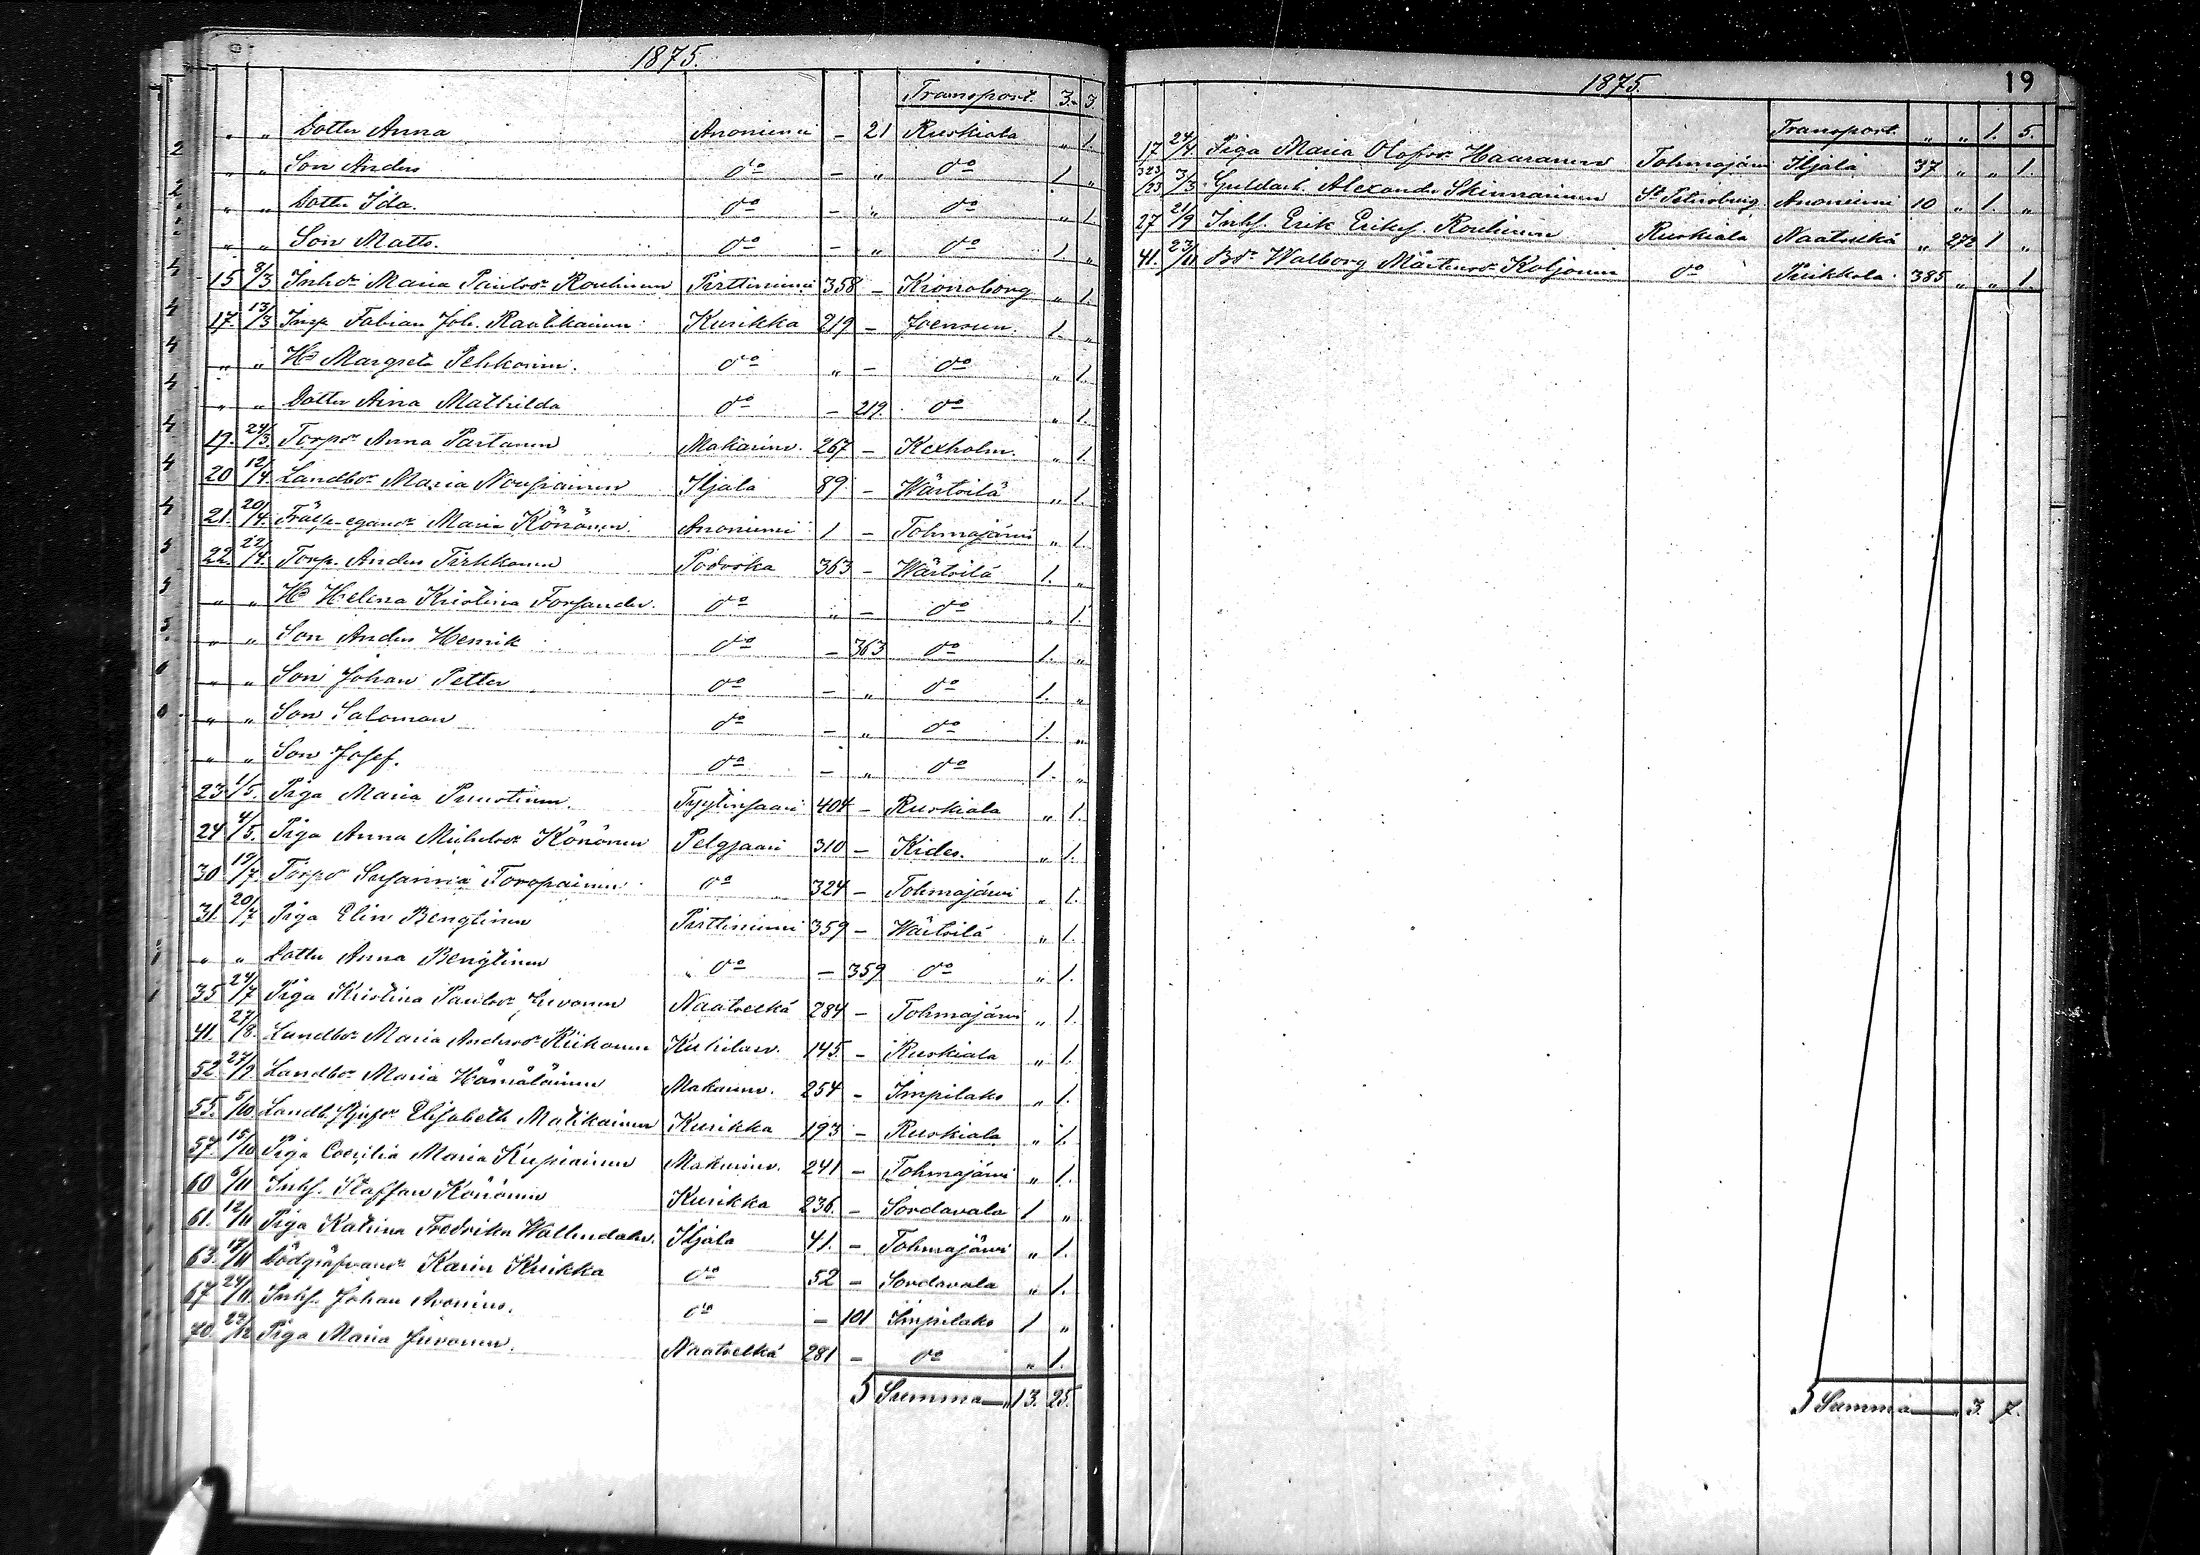 1875.
Transport. 3. 3.
„ „ Dotter Anna Anoniemi – 21 Ruskiala „ 1.
„ „ Son Anders do – „ do 1 „
„ „ Dotter Ida. do – „ do „ 1.
„ „ Son Matts. do – „ do 1 „
15 9/3 Inhda Maria Paulsdr Rouhinen Pirttiniemi 358 – Kronoborg „ 1.
17. 13/3 Insp. Fabian Joh. Raatikainen Kurikka 219 – Joensuu. 1. „
„ „ Hu Margreta Pehkonen. do „ – do „ 1.
„ „ Dotter Aina Mathilda do – 219 do „ 1.
19. 24/3 Torpdr Anna Partanen Makarinv. 267 – Kexholm. „ 1
20 12/4 Landbdr Maria Nousiainen Iljala 89 – Wärtsilä „ 1.
21. 20/4 Frälseegaredr Maria Könönen. Anoniemi 1 – Tohmajärvi „ 1.
22. 22/4. Torp. Anders Pirhkonen Podorska 363 – Wärtsilä 1. „
„ „ Hu Helena Kristina Forsander. do „ – do „ 1.
„ „ Son Anders Henrik do – 363 do 1. „
„ „ Son Johan Petter do – „ do 1. „
„ „ Son Salomon do – „ do 1. „
„ „ Son Josef. do – „ do 1. „
23 1/5. Piga Maria Puustinen. Tyytinsaari 404 – Ruskiala „ 1.
24 4/5. Piga Anna Michelsdr Könönen Pelgjaari 310 – Kides. „ 1.
30 19/7. Torpdr Susanna Toropainen do 324 – Tohmajärvi „ 1.
31. 20/7 Piga Elin Bengtinen Pirttiniemi 359 – Wärtsilä „ 1.
„ „ Dotter Anna Bengtinen do – 359 do „ 1.
35 24/7 Piga Kristina Paulsdr Juvonen Naatselkä 284 – Tohmajärvi „ 1.
41. 27/8. Landbdr Maria Andersdr Kiikonen Kukilanv. 145. – Ruskiala „ 1.
52. 27/9 Landbdr Maria Hämäläinen Makarinv. 254 – Impilaks „ 1.
55. 5/10 Landb. Elisabeth Matikainen Kurikka 193 – Ruskiala „ 1.
57. 15/10 Piga Cecilia Maria Kupiainen Makarinv. 241 – Tohmajärvi „ 1.
60 6/11 Inhs. Staffan Könönen Kurikka 236. – Sordavala 1 „
61. 12/11 Piga Katrina Fredrika Wallendahr. Iljala 41. – Tohmajärvi „ 1.
63. 18/11 Karin Kurikka do 52 – Sordavala „ 1.
67 24/11 Inhs. Johan Aronius. do – 101 Impilaks 1 „
70. 22/12 Piga Maria Juvonen. Naatselkä 281 – do „ 1.
Summa — „ 13. 25.
1875. 19
Transport. „ „ 1. 5.
17 24/4 Piga Maria Olofsdr Haaranen Tohmajärvi Iljala 37 „ „ 1.
23 3/3 Guldarb. Alexander Skinnarinen St Petersburg Anoniemi 10 „ 1. „
27 21/9 Inhs. Erik Eriks. Rouhinen Ruskiala Naatselkä „ 272 1 „
41. 23/11 Bdr Walborg Mårtensdr Koljonen do Puikkola 385 „ „ 1.
Summa — „ 3. 7.